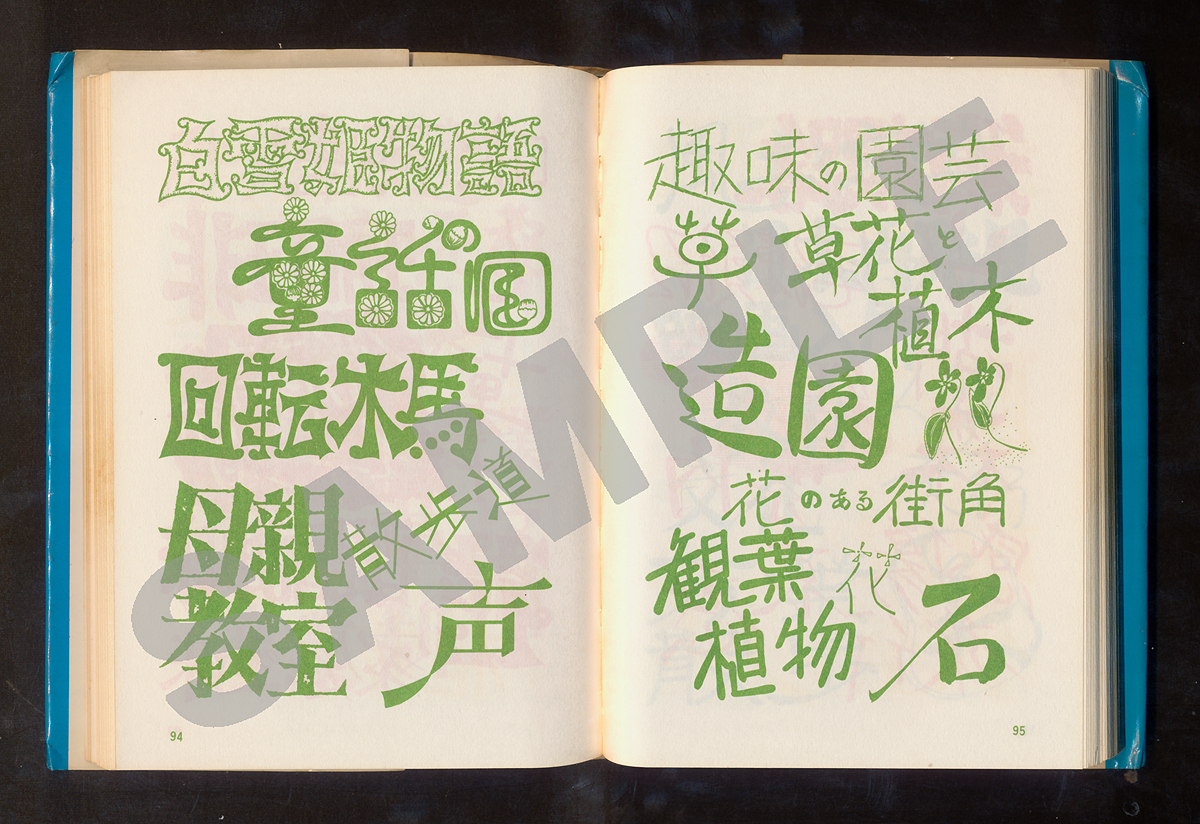 白雪姫物語
童話の国
回転木馬
母親
教室
散歩道
声
94
趣味の園芸
草
草花と
植木
造園
花のある街角
観葉
植物
花
石
95
SAMPLE